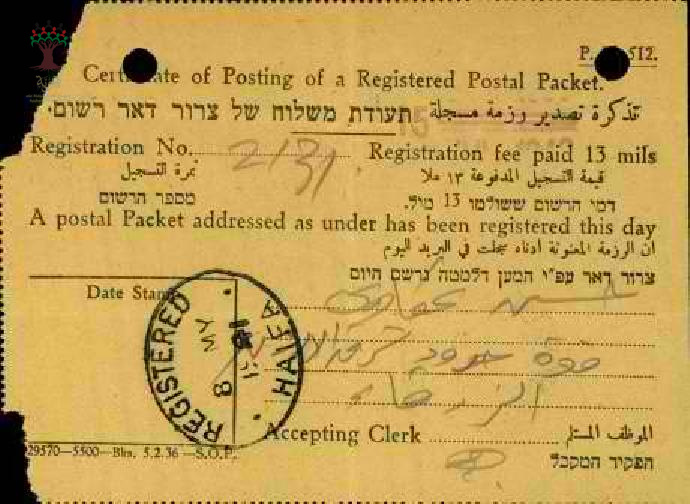 P. 512.
of Posting of a Registered Postal Packet.
تذكرة تصدير رزمة مسجلة תעודת משלוח של צרור דאר רשום.
Registration No. 2131 Registration fee paid 13 mils
نمرة التسجيل قيمة التسجيل المدفوعة ١٣ ملا
מספר הרשום דמי הרשום ששולמו 13 מיל.
A postal Packet addressed as under has been registered this day
ان الرزمة المعنونة ادناه سجلت في البريد اليوم
צרור דאר עפ"י המען דלמטה נרשם היום
Date Stamp
REGISTERED HAIFA
8 MY
قوة حدود
الزرقاء
Accepting Clerk الموظف المستلم
הפקיד המקבל
29570—5500—Bks. 5.2.36—S.O.P.